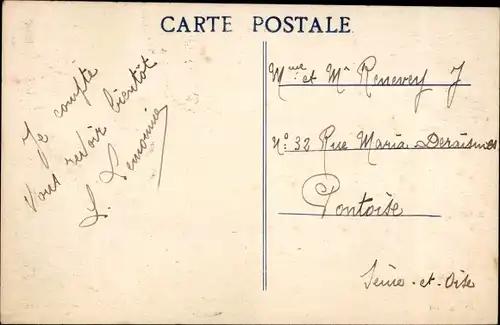 CARTE POSTALE
Je compte
vous revoir bientôt
L. Lemoinne
Mme et Mr Renevey J
No 32 Rue Maria Deraismes
Pontoise
Seine-et-Oise